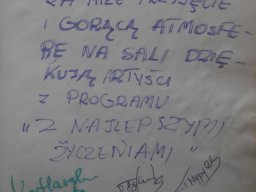 ZA MIŁE PRZYJĘCIE
I GORĄCĄ ATMOSFE-
RĘ NA SALI DZIĘ-
KUJĄ ARTYŚCI
Z PROGRAMU
"Z NAJLEPSZYMI
ŻYCZENIAMI"